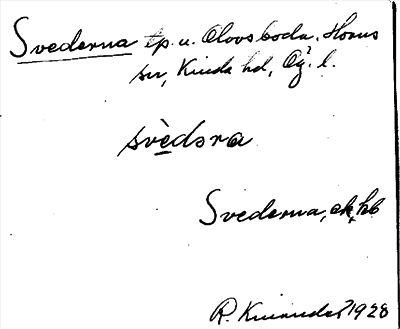 Svederna tp. u. Olovsboda. Horns
sn, Kinda hd, Ög. l.
svèdσra
Svederna, ek, hb
R. Kinander 1928